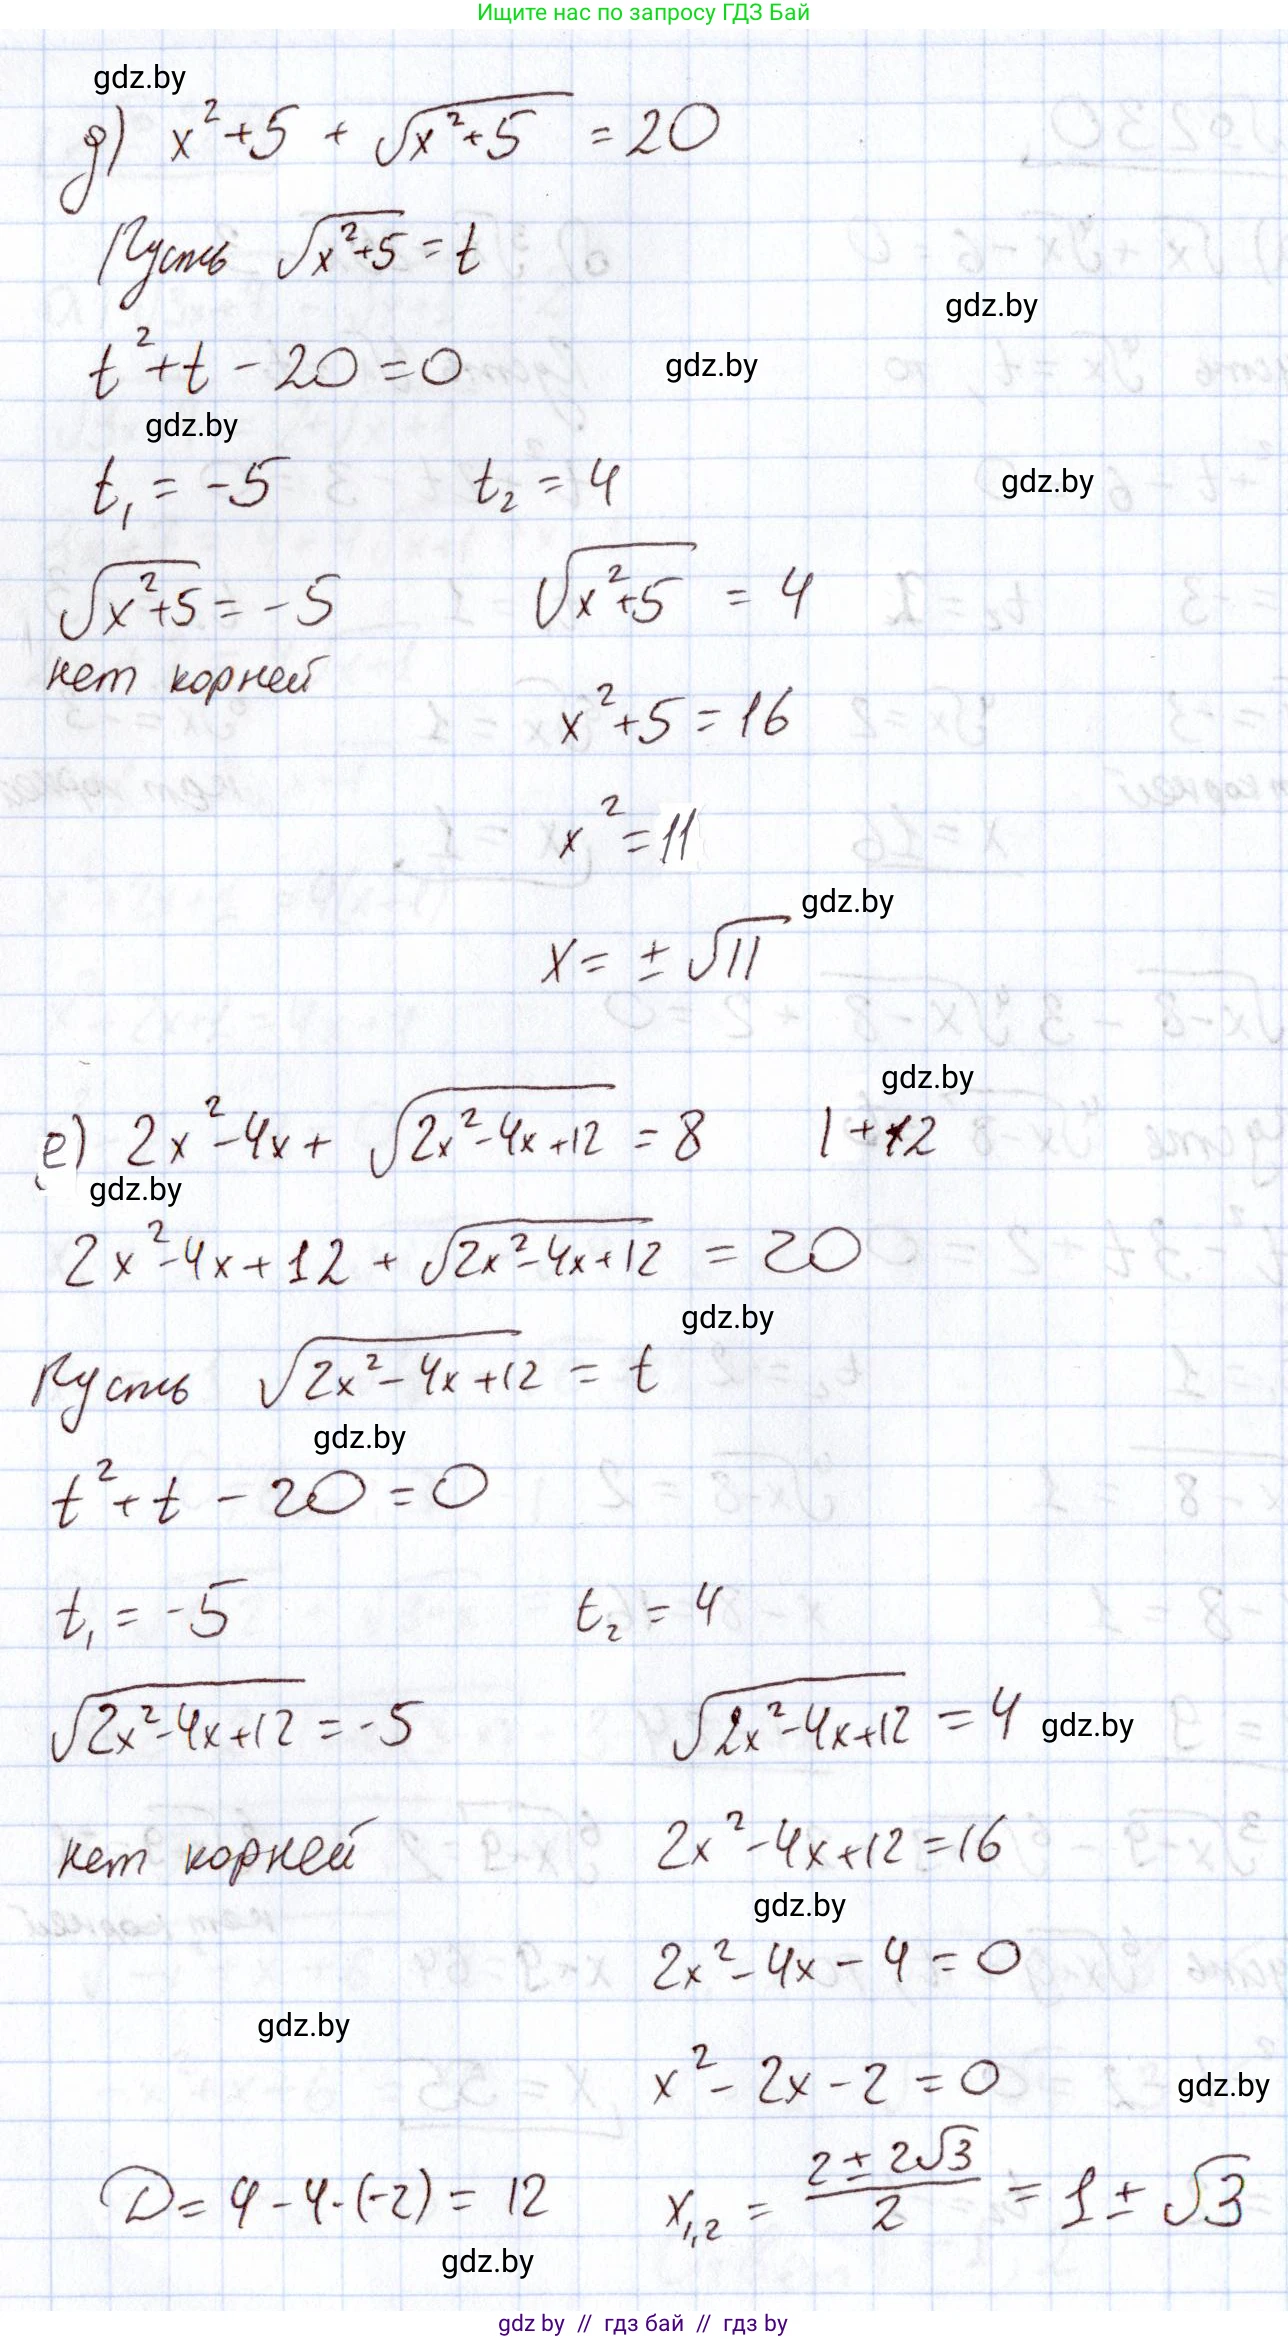 Ищите нас по запросу ГДЗ Бай
gdz.by
д) x²+5 + √(x²+5) = 20
Пусть √(x²+5) = t
gdz.by
t²+t - 20 = 0 gdz.by
gdz.by
t₁ = -5 t₂ = 4 gdz.by
√(x²+5) = -5 √(x²+5) = 4
нет корней
x²+5 = 16
x² = 11
gdz.by
x = ± √11
gdz.by
е) 2x²-4x+ √(2x²-4x+12) = 8 | + 12
gdz.by
2x²-4x+12 + √(2x²-4x+12) = 20
gdz.by
Пусть √(2x²-4x+12) = t
gdz.by
t²+t - 20 = 0
t₁ = -5 t₂ = 4
√(2x²-4x+12) = -5 √(2x²-4x+12) = 4 gdz.by
нет корней 2x²-4x+12 = 16
gdz.by
2x²-4x-4 = 0
gdz.by
x²-2x-2 = 0 gdz.by
D = 4-4·(-2) = 12 x₁,₂ = (2±2√3)/2 = 1±√3
gdz.by
gdz by // гдз бай // гдз by